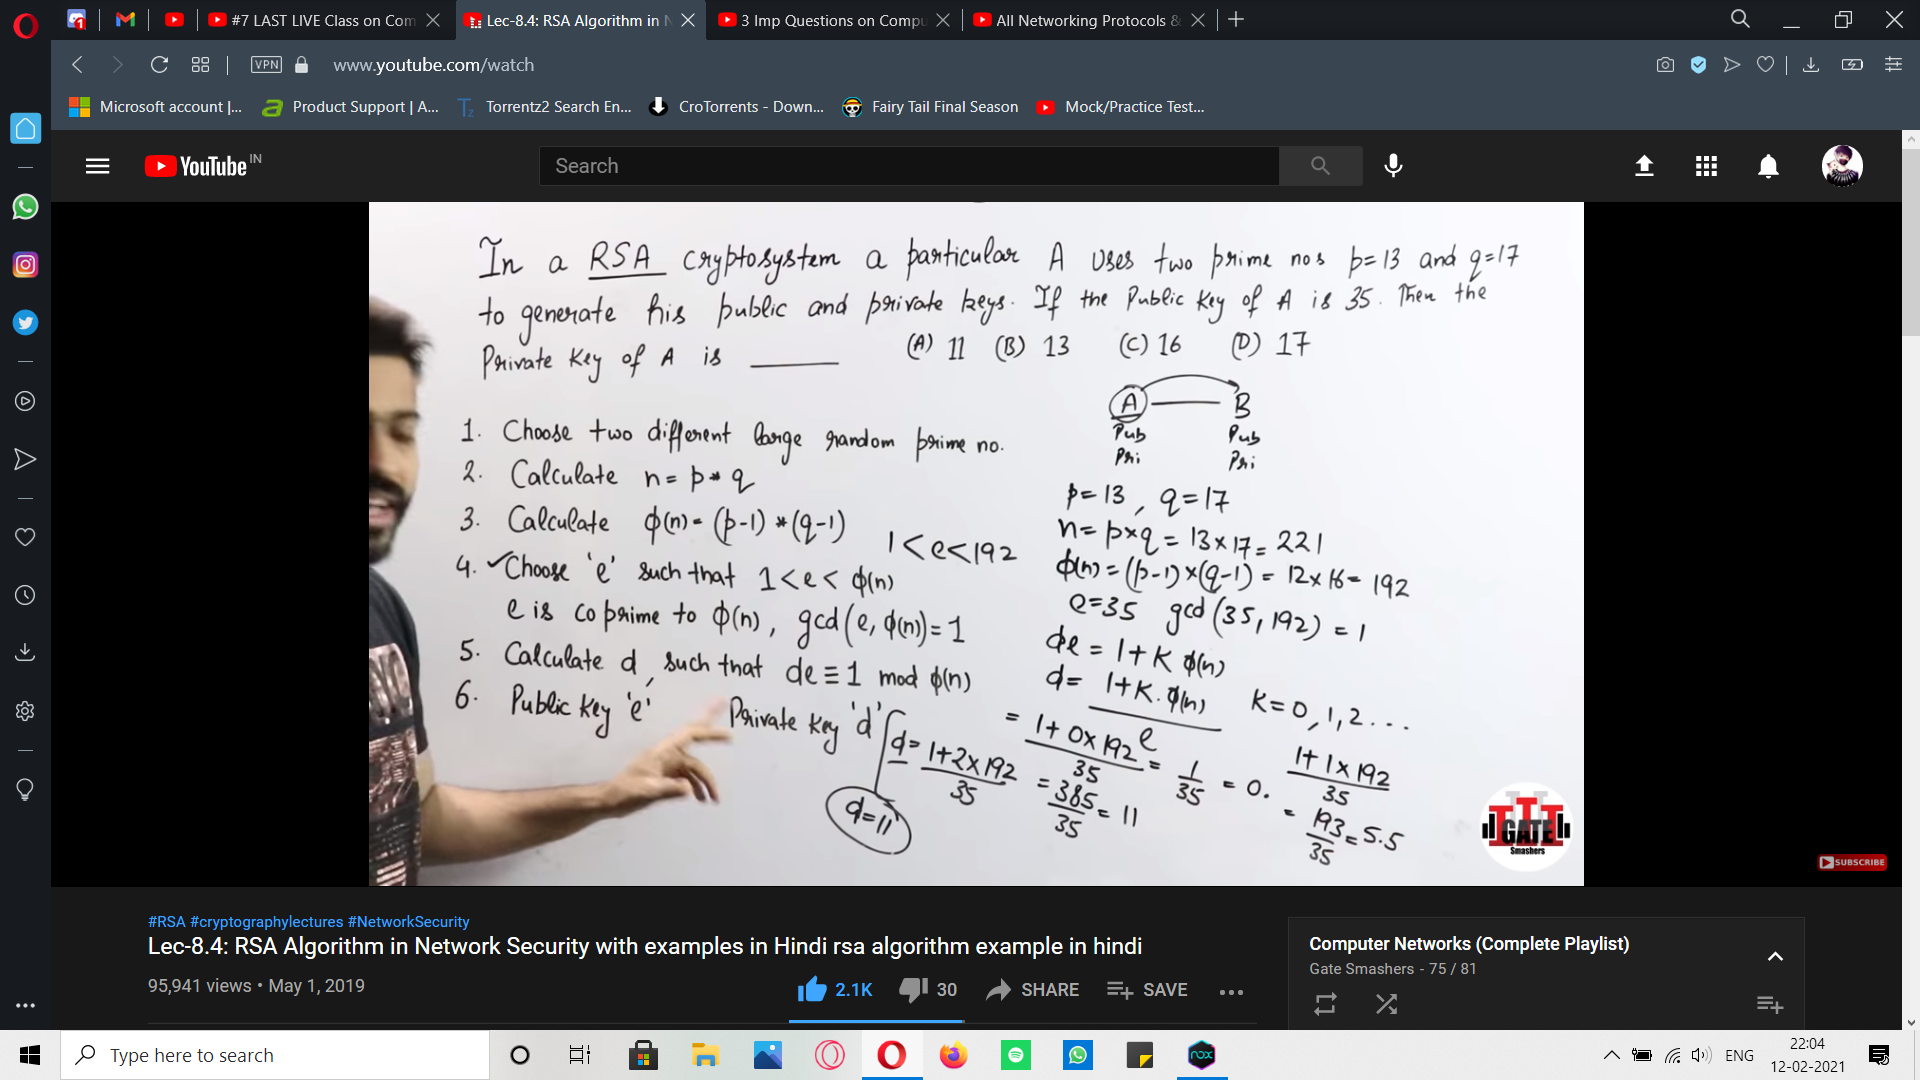 #7 LAST LIVE Class on Com
Lec-8.4: RSA Algorithm in N
3 Imp Questions on Compu
All Networking Protocols &
VPN
www.youtube.com/watch
Microsoft account |...
Product Support | A...
Torrentz2 Search En...
CroTorrents - Down...
Fairy Tail Final Season
Mock/Practice Test...
YouTube IN
Search
In a RSA cryptosystem a particular A uses two prime nos p=13 and q=17
to generate his public and private keys. If the Public Key of A is 35. Then the
Private Key of A is ______ (A) 11 (B) 13 (C) 16 (D) 17
A B
Pub Pub
Pri Pri
1. Choose two different large random prime no.
2. Calculate n = p * q
3. Calculate ϕ(n) = (p-1) * (q-1)
1<e<192
4. ✓Choose 'e' such that 1 < e < ϕ(n)
e is co prime to ϕ(n), gcd(e, ϕ(n)) = 1
5. Calculate d, such that de ≡ 1 mod ϕ(n)
6. Public Key 'e' Private Key 'd'
p=13, q=17
n = p×q = 13×17 = 221
ϕ(n) = (p-1)×(q-1) = 12×16 = 192
e=35 gcd(35,192) = 1
de = 1+K ϕ(n)
d = 1+K.ϕ(n) / e K=0,1,2...
= 1+0×192 / 35 = 1/35 = 0.
1+1×192 / 35
= 193/35 = 5.5
d = 1+2×192 / 35 = 385/35 = 11
d=11
GATE
Smashers
SUBSCRIBE
#RSA #cryptographylectures #NetworkSecurity
Lec-8.4: RSA Algorithm in Network Security with examples in Hindi rsa algorithm example in hindi
95,941 views • May 1, 2019
2.1K
30
SHARE
SAVE
Computer Networks (Complete Playlist)
Gate Smashers - 75 / 81
Type here to search
nox
ENG
22:04
12-02-2021